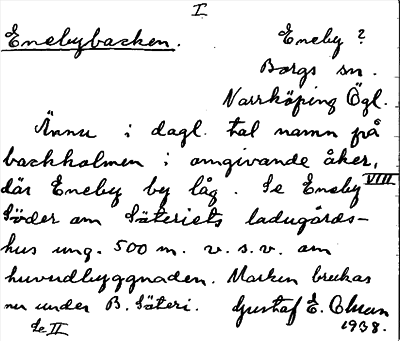 I
Enebybacken. Eneby?
Borgs sn.
Norrköping Ögl.
Ännu i dagl. tal namn på
backholmen i omgivande åker,
där Eneby by låg. Se Eneby VIII
Söder om Säteriets ladugårds-
hus ung. 500 m. v.s.v. om
huvudbyggnaden. Marken brukas
nu under B. Säteri. Gustaf E. Olsson
Se II 1938.